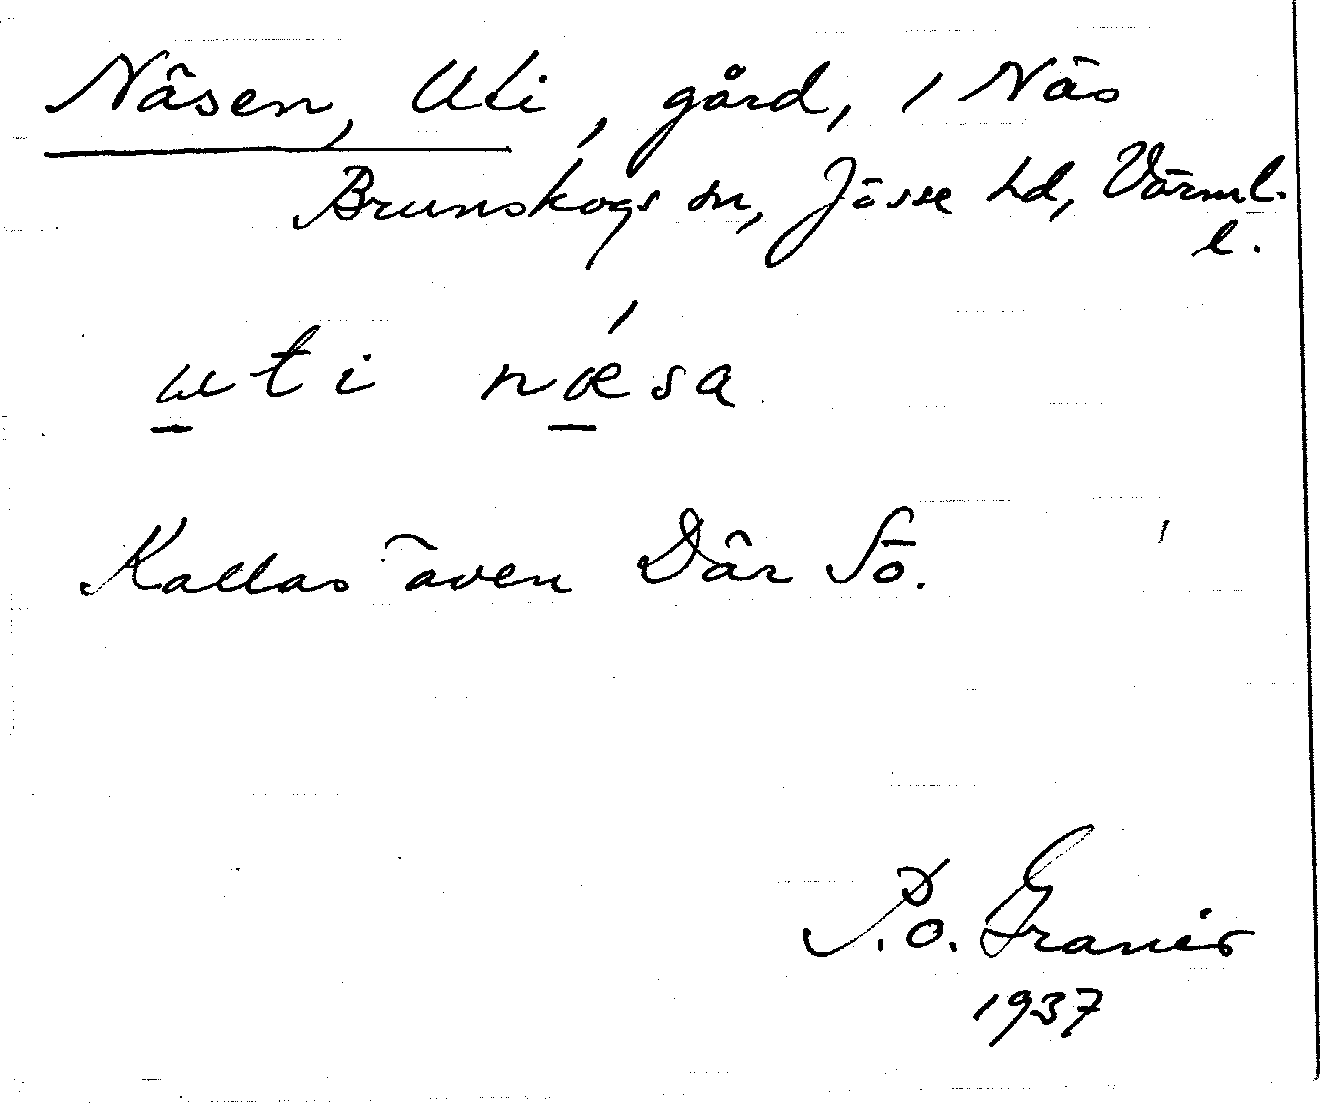 Näsen, Uti, gård, i Näs
Brunskogs sn, Jösse hd, Värml.
l.
uti næ´sa
Kallas även Där Sö.
P.O. Granér
1937